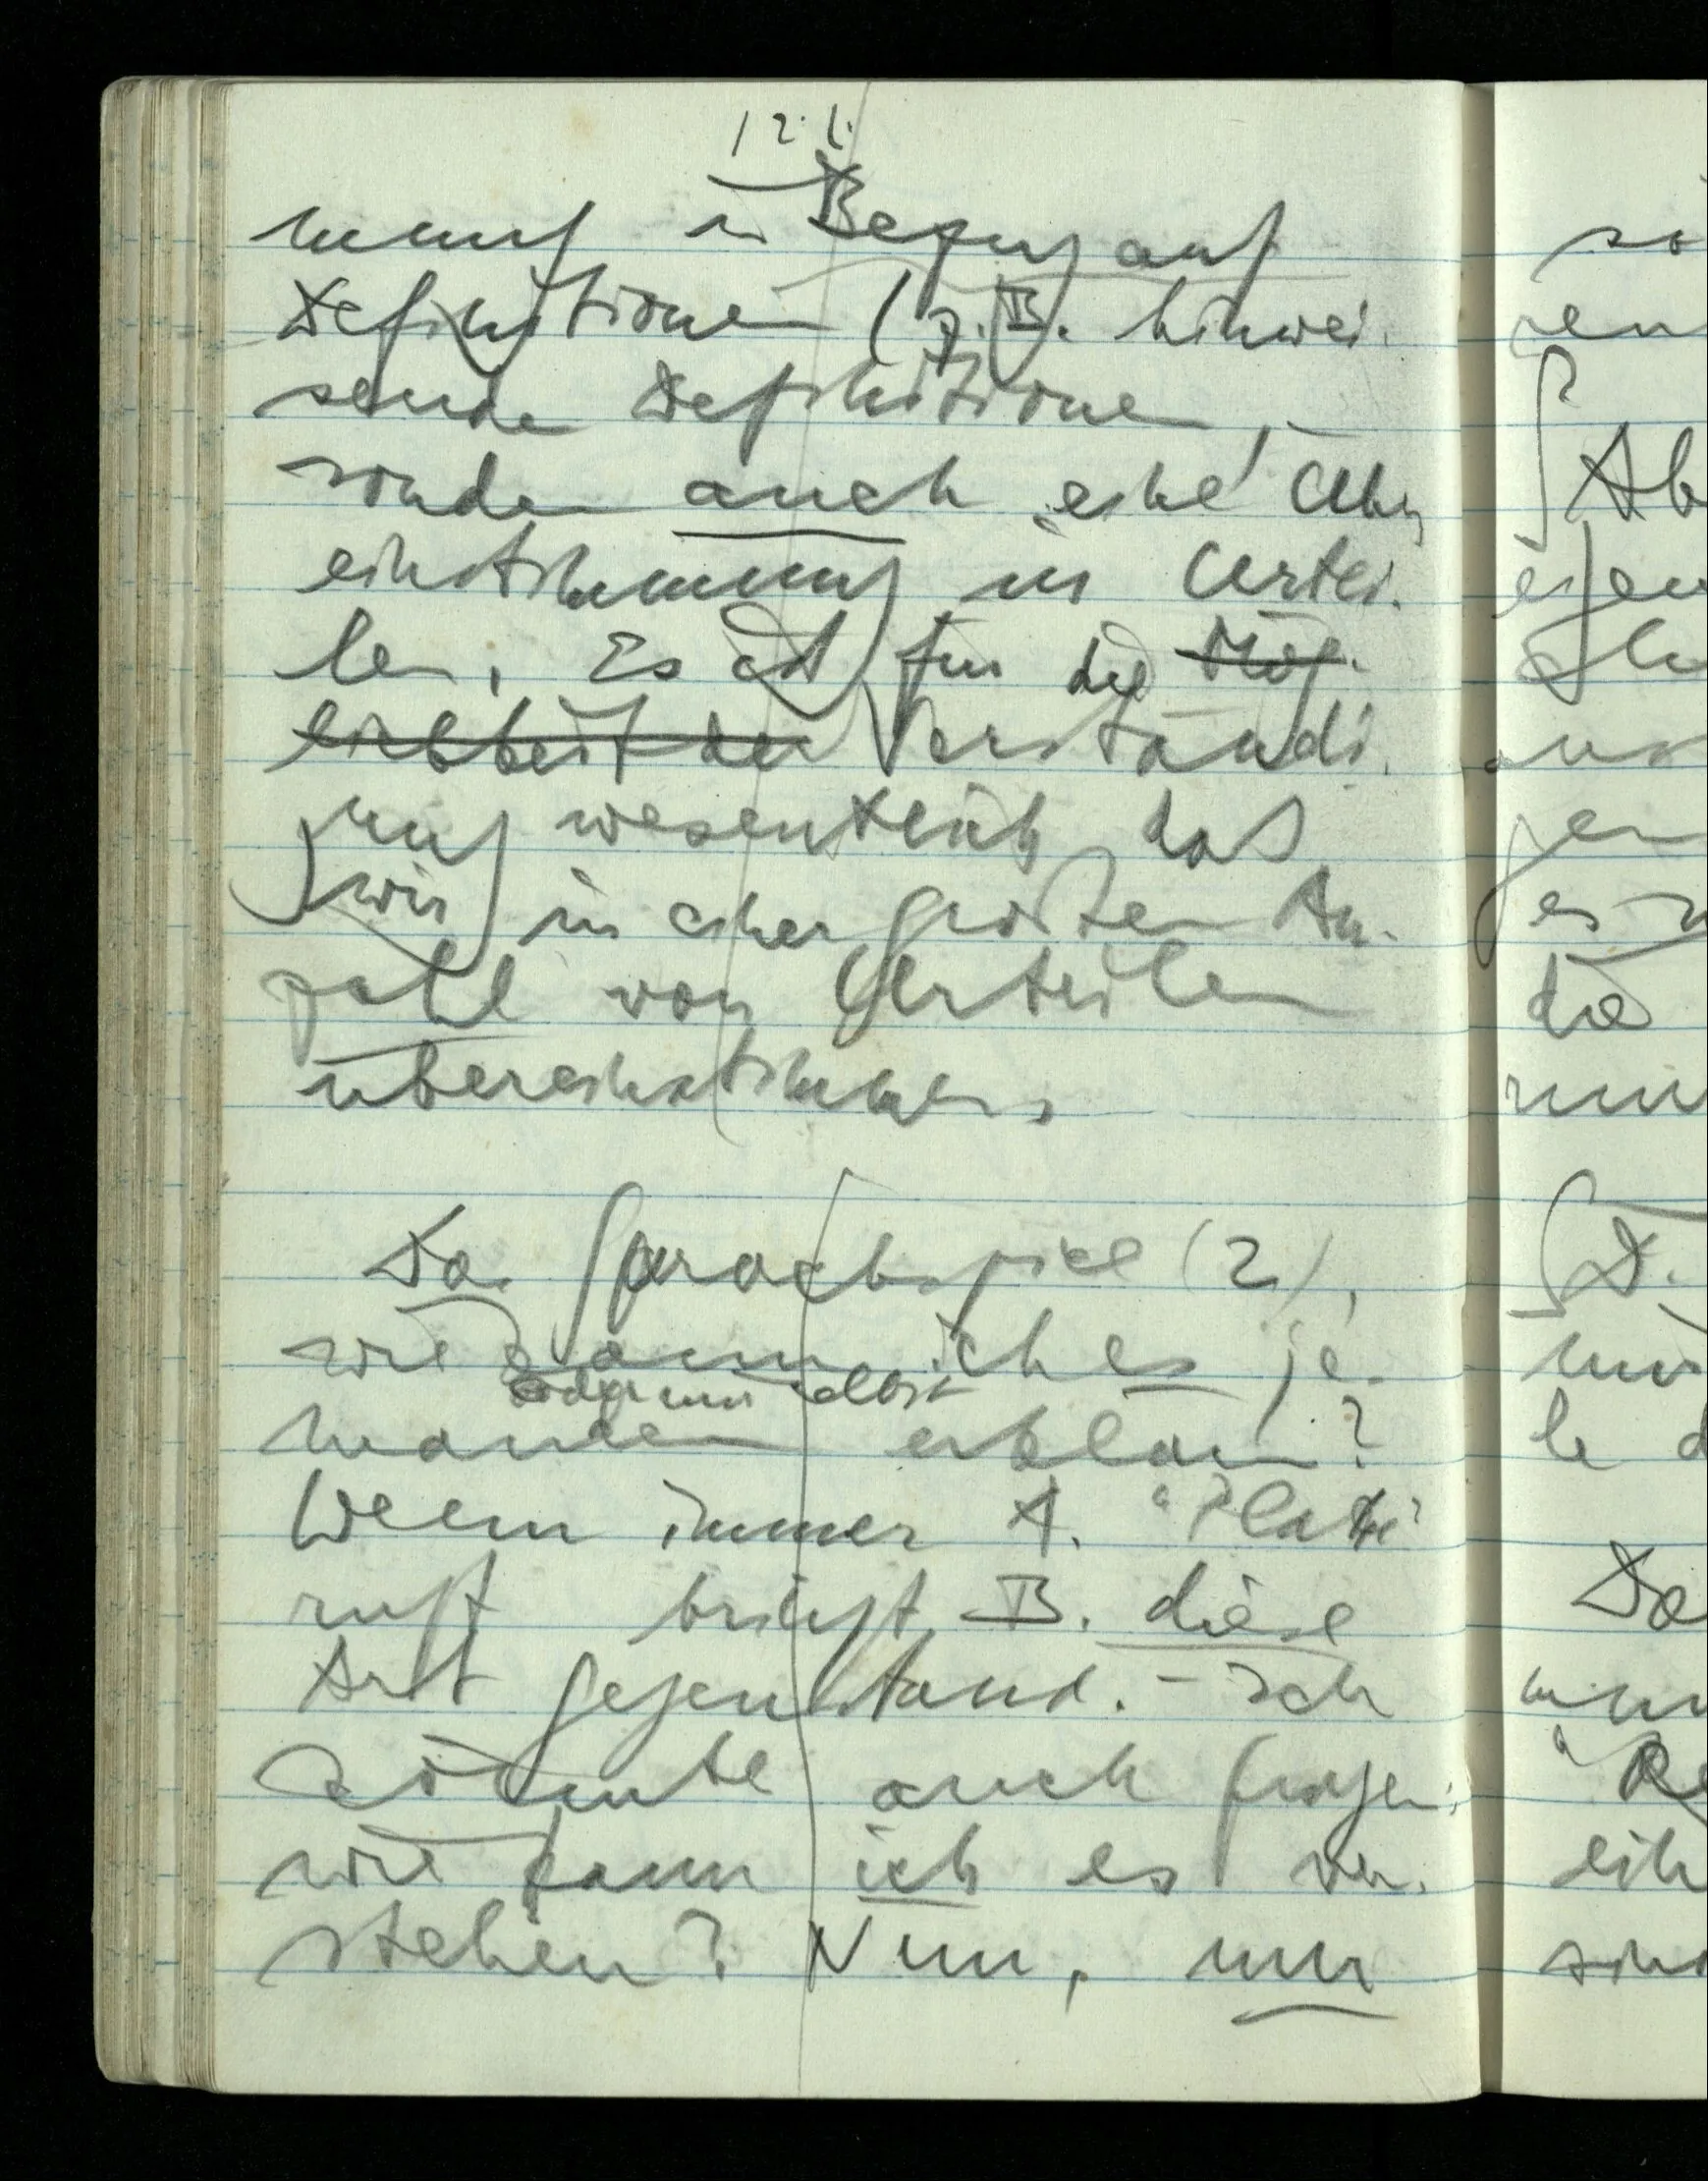 12.1.
mung in Bezug auf
Definitionen (z.B. hinwei-
sende Definitionen, –
sondern auch eine Über
einstimmung in Urtei-
len. Es ist für die Mög-
lichkeit der Verständi-
gung wesentlich daß
wir in einer großen An-
zahl von Urteilen
übereinstimmen.
Das Sprachspiel (2),
wie kann ich es je-
oder mir selbst
mandem erklären?
Wenn immer A. "Platte"
ruft bringt B. diese
Art Gegenstand. – Ich
könnte auch fragen:
wie kann ich es ver-
stehen? Nun, nur
so
ren
Ab
eigen
gen
es
die
D.
le d
Da
"Re
ein